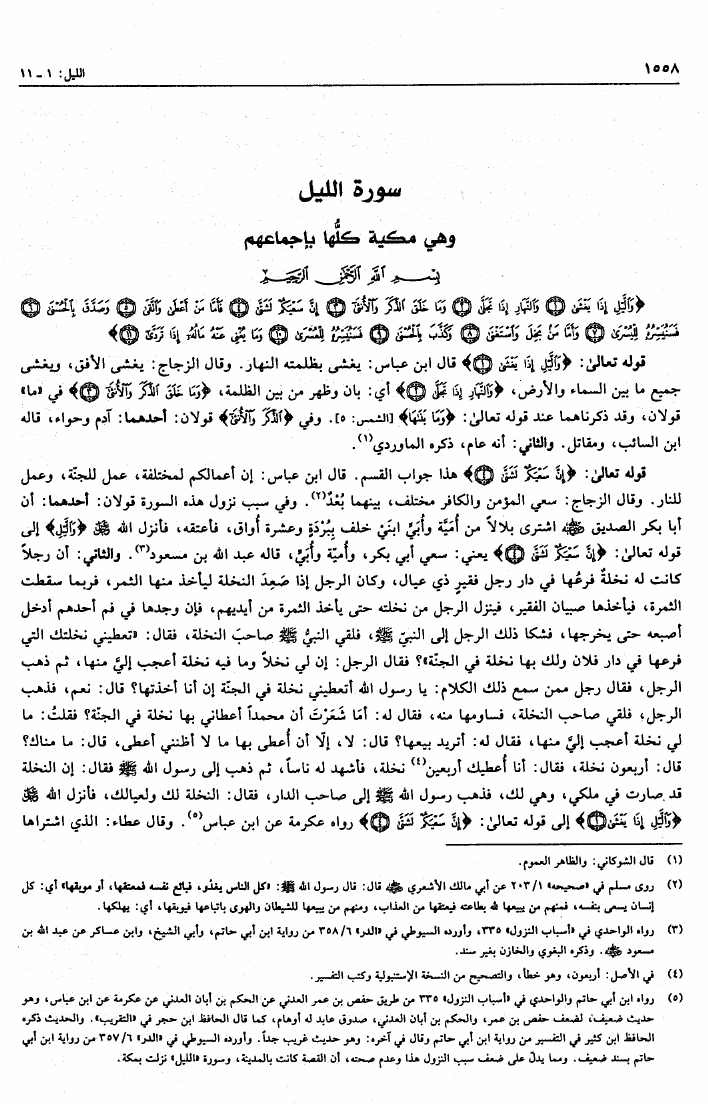 ١٥٥٨
الليل: ١ ـ ١١
سورة الليل
وهي مكية كلُّها بإجماعهم
بِسْمِ اللَّهِ الرَّحْمَنِ الرَّحِيمِ
﴿وَٱلَّيْلِ إِذَا يَغْشَىٰ ﴿١﴾ وَٱلنَّهَارِ إِذَا تَجَلَّىٰ ﴿٢﴾ وَمَا خَلَقَ ٱلذَّكَرَ وَٱلْأُنثَىٰ ﴿٣﴾ إِنَّ سَعْيَكُمْ لَشَتَّىٰ ﴿٤﴾ فَأَمَّا مَنْ أَعْطَىٰ وَٱتَّقَىٰ ﴿٥﴾ وَصَدَّقَ بِٱلْحُسْنَىٰ ﴿٦﴾
فَسَنُيَسِّرُهُۥ لِلْيُسْرَىٰ ﴿٧﴾ وَأَمَّا مَنۢ بَخِلَ وَٱسْتَغْنَىٰ ﴿٨﴾ وَكَذَّبَ بِٱلْحُسْنَىٰ ﴿٩﴾ فَسَنُيَسِّرُهُۥ لِلْعُسْرَىٰ ﴿١٠﴾ وَمَا يُغْنِى عَنْهُ مَالُهُۥٓ إِذَا تَرَدَّىٰٓ ﴿١١﴾﴾
قوله تعالىٰ: ﴿وَٱلَّيْلِ إِذَا يَغْشَىٰ ﴿١﴾﴾ قال ابن عباس: يغشى بظلمته النهار. وقال الزجاج: يغشى الأفق، ويغشى
جميع ما بين السماء والأرض، ﴿وَٱلنَّهَارِ إِذَا تَجَلَّىٰ ﴿٢﴾﴾ أي: بان وظهر من بين الظلمة، ﴿وَمَا خَلَقَ ٱلذَّكَرَ وَٱلْأُنثَىٰ ﴿٣﴾﴾ في «ما»
قولان، وقد ذكرناهما عند قوله تعالىٰ: ﴿وَمَا بَنَىٰهَا﴾ [الشمس: ٥]. وفي ﴿ٱلذَّكَرَ وَٱلْأُنثَىٰ﴾ قولان: أحدهما: آدم وحواء، قاله
ابن السائب، ومقاتل. والثاني: أنه عام، ذكره الماوردي(١).
قوله تعالىٰ: ﴿إِنَّ سَعْيَكُمْ لَشَتَّىٰ ﴿٤﴾﴾ هذا جواب القسم. قال ابن عباس: إن أعمالكم لمختلفة، عمل للجنّة، وعمل
للنار. وقال الزجاج: سعي المؤمن والكافر مختلف، بينهما بُعْدٌ(٢). وفي سبب نزول هذه السورة قولان: أحدهما: أن
أبا بكر الصديق ﷺ اشترى بلالاً من أُمَيَّة وأُبَيِّ ابنَيْ خلف بِبُرْدَةٍ وعشرة أواق، فأعتقه، فأنزل الله ﷻ ﴿وَٱلَّيْلِ﴾ إلى
قوله تعالىٰ: ﴿إِنَّ سَعْيَكُمْ لَشَتَّىٰ ﴿٤﴾﴾ يعني: سعي أبي بكر، وأميّة وأُبَيٍّ، قاله عبد الله بن مسعود(٣). والثاني: أن رجلاً
كانت له نخلةٌ فرعُها في دار رجل فقيرٍ ذي عيال، وكان الرجل إذا صَعِدَ النخلة ليأخذ منها الثمر، فربما سقطت
الثمرة، فيأخذها صبيان الفقير، فينزل الرجل من نخلته حتى يأخذ الثمرة من أيديهم، فإن وجدها في فم أحدهم أدخل
أصبعه حتى يخرجها، فشكا ذلك الرجل إلى النبيّ ﷺ، فلقي النبيُّ ﷺ صاحبَ النخلة، فقال: «تعطيني نخلتك التي
فرعها في دار فلان ولك بها نخلة في الجنّة»؟ فقال الرجل: إن لي نخلاً وما فيه نخلة أعجب إليَّ منها، ثم ذهب
الرجل، فقال رجل ممن سمع ذلك الكلام: يا رسول الله أتعطيني نخلة في الجنّة إن أنا أخذتها؟ قال: نعم، فذهب
الرجل، فلقي صاحب النخلة، فساومها منه، فقال له: أمَا شَعَرْتَ أن محمداً أعطاني بها نخلة في الجنّة؟ فقلتُ: ما
لي نخلة أعجب إليَّ منها، فقال له: أتريد بيعها؟ قال: لا، إلّا أن أُعطى بها ما لا أظنني أعطى، قال: ما مناك؟
قال: أربعون نخلة، فقال: أنا أعطيك أربعين(٤) نخلة، فأشهد له ناساً، ثم ذهب إلى رسول الله ﷺ فقال: إن النخلة
قد صارت في ملكي، وهي لك، فذهب رسول الله ﷺ إلى صاحب الدار، فقال: النخلة لك ولعيالك، فأنزل الله ﷻ
﴿وَٱلَّيْلِ إِذَا يَغْشَىٰ ﴿١﴾﴾ إلى قوله تعالىٰ: ﴿إِنَّ سَعْيَكُمْ لَشَتَّىٰ ﴿٤﴾﴾ رواه عكرمة عن ابن عباس(٥). وقال عطاء: الذي اشتراها
(١) قال الشوكاني: والظاهر العموم.
(٢) روى مسلم في «صحيحه» ٢٠٣/١ عن أبي مالك الأشعري ﷺ قال: قال رسول الله ﷺ: «كل الناس يغدُو، فبائع نفسه فمعتقها، أو موبقها» أي: كل
إنسان يسعى بنفسه، فمنهم من يبيعها لله بطاعته فيعتقها من العذاب، ومنهم من يبيعها للشيطان والهوى باتباعها فيوبقها، أي: يهلكها.
(٣) رواه الواحدي في «أسباب النزول» ٣٣٥، وأورده السيوطي في «الدر» ٣٥٨/٦ من رواية ابن أبي حاتم، وأبي الشيخ، وابن عساكر عن عبد الله بن
مسعود ﷺ. وذكره البغوي والخازن بغير سند.
(٤) في الأصل: أربعون، وهو خطأ، والتصحيح من النسخة الإستنبولية وكتب التفسير.
(٥) رواه ابن أبي حاتم والواحدي في «أسباب النزول» ٣٣٥ من طريق حفص بن عمر العدني عن الحكم بن أبان العدني عن عكرمة عن ابن عباس، وهو
حديث ضعيف، لضعف حفص بن عمر، والحكم بن أبان العدني، صدوق عابد له أوهام، كما قال الحافظ ابن حجر في «التقريب». والحديث ذكره
الحافظ ابن كثير في التفسير من رواية ابن أبي حاتم وقال في آخره: وهو حديث غريب جداً. وأورده السيوطي في «الدر» ٣٥٧/٦ من رواية ابن أبي
حاتم بسند ضعيف. ومما يدلّ على ضعف سبب النزول هذا وعدم صحته، أن القصة كانت بالمدينة، وسورة «الليل» نزلت بمكة.